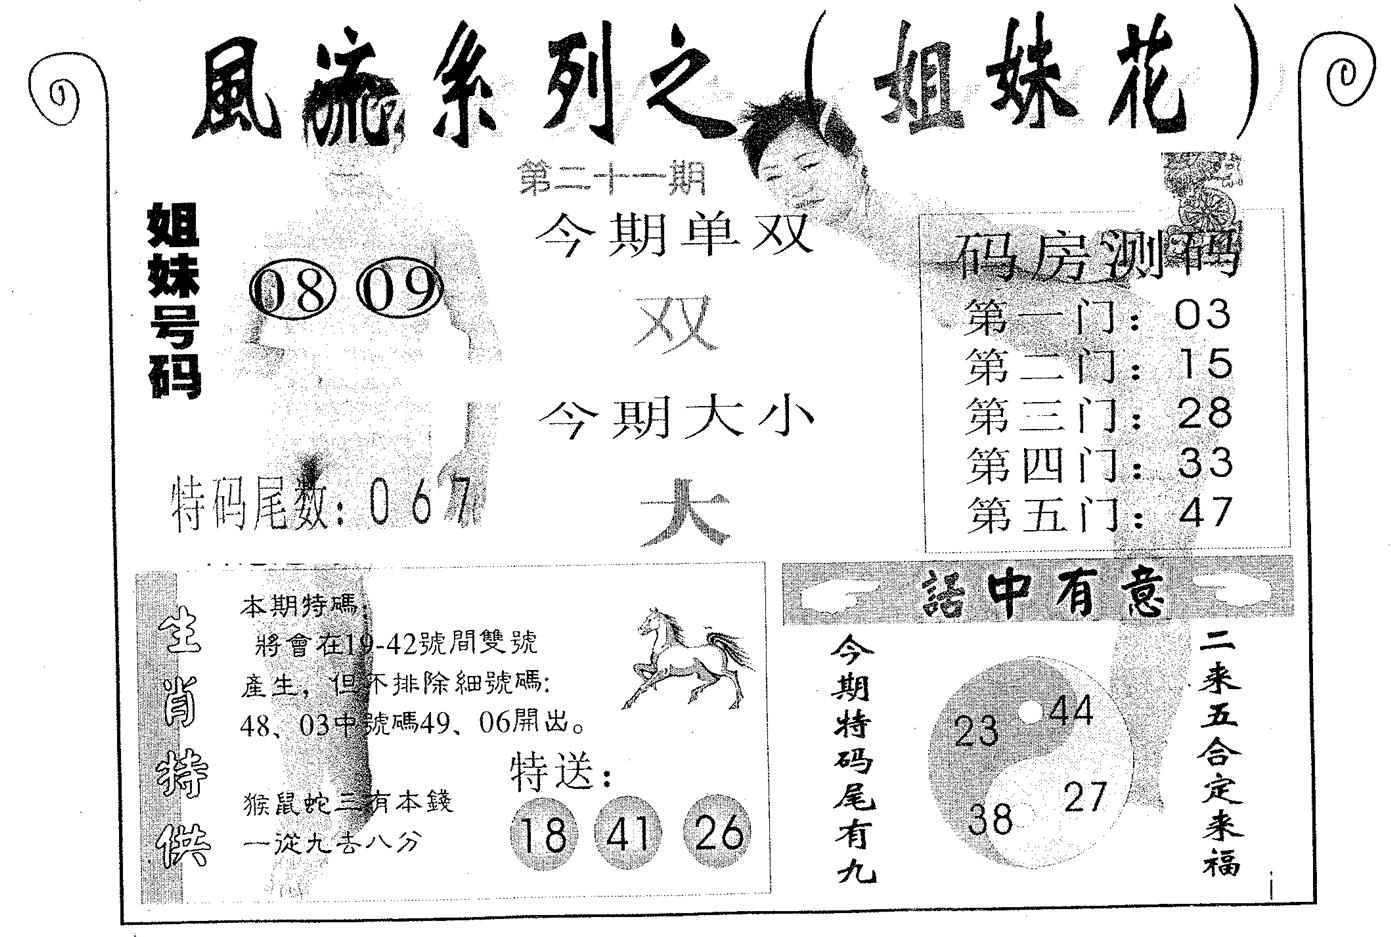 風流系列之（姐妹花）
第二十一期
姐妹号码
08 09
特码尾数：0 6 7
今期单双
双
今期大小
大
码房测码
第一门：03
第二门：15
第三门：28
第四门：33
第五门：47
生肖特供
本期特碼：
將會在19-42號間雙號
產生，但不排除細號碼：
48、03中號碼49、06開出。
猴鼠蛇三有本錢
一從九去八分
特送：
18 41 26
話中有意
今期特码尾有九
23 44
38 27
二来五合定来福